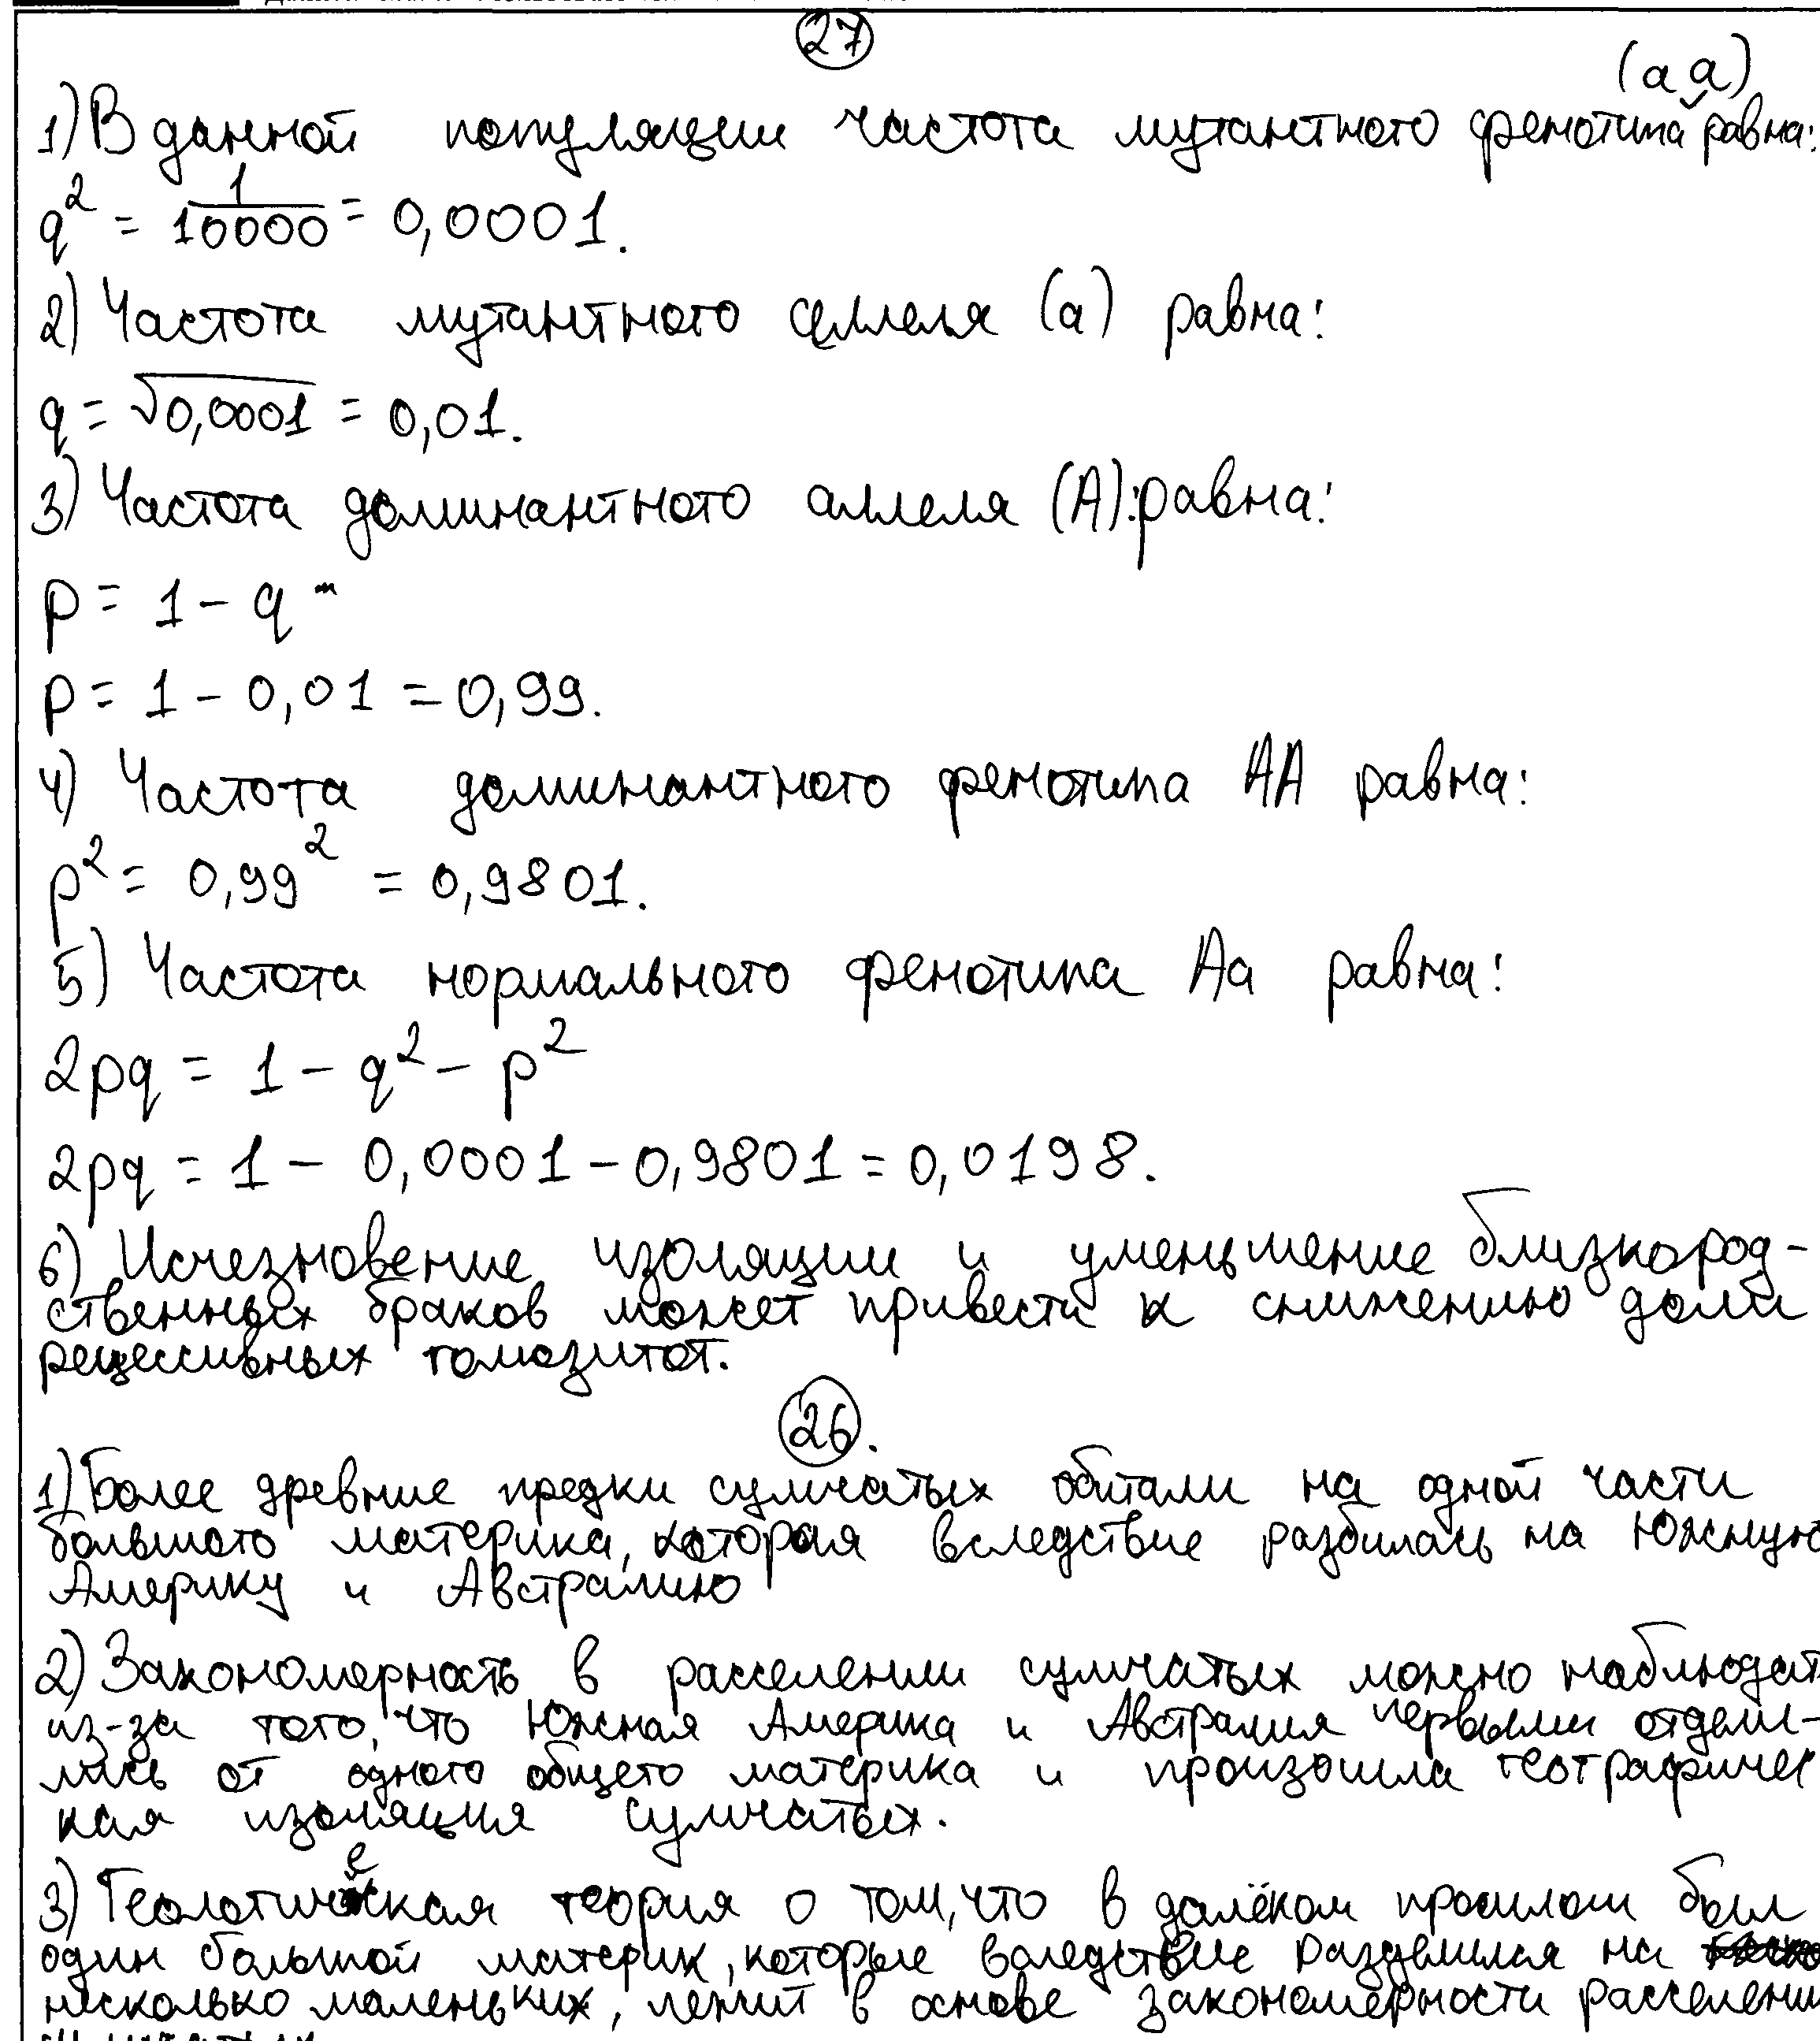 27
(аа)
1) В данной популяции частота мутантного фенотипа равна:
q² = 1/10000 = 0,0001.
2) Частота мутантного аллеля (а) равна:
q = √0,0001 = 0,01.
3) Частота доминантного аллеля (А): равна:
p = 1 - q
p = 1 - 0,01 = 0,99.
4) Частота доминантного фенотипа АА равна:
p² = 0,99² = 0,9801.
5) Частота нормального фенотипа Аа равна:
2pq = 1 - q² - p²
2pq = 1 - 0,0001 - 0,9801 = 0,0198.
6) Исчезновение изоляции и уменьшение близкород-
ственных браков может привести к снижению доли
рецессивных гомозигот.
26.
1) Более древние предки сумчатых обитали на одной части
большого материка, которая вследствие разбилась на Южную
Америку и Австралию
2) Закономерность в расселении сумчатых можно наблюдат
из-за того, что Южная Америка и Австралия первыми отдели-
лись от одного общего материка и произошла географичес
кая изоляция сумчатых.
3) Геологическая теория о том, что в далёком прошлом был
один большой материк, которые вследствие разделился на
несколько маленьких, лежит в основе закономерности расселени